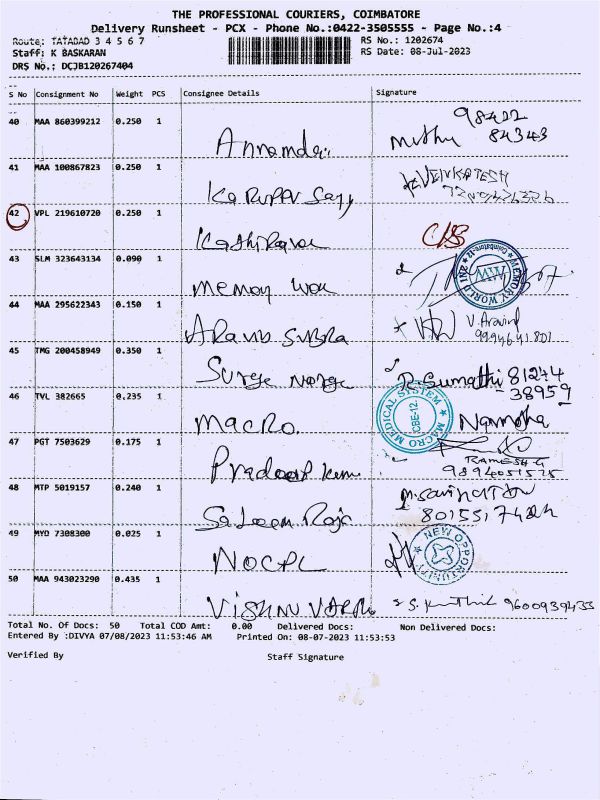 THE PROFESSIONAL COURIERS, COIMBATORE
Delivery Runsheet - PCX - Phone No.:0422-3505555 - Page No.:4
Route: TATABAD 3 4 5 6 7 RS No.: 1202674
Staff: K BASKARAN RS Date: 08-Jul-2023
DRS No.: DCJB120267404
S No Consignment No Weight PCS Consignee Details Signature
40 MAA 860399212 0.250 1 Muthu 98422 84343
41 MAA 100867823 0.250 1 VENKATESH
42 VPL 219610720 0.250 1 Kathiravan
43 SLM 323643134 0.090 1 MEMORY WORLD IND Coimbatore-12 MW
44 MAA 295622343 0.150 1 ARAVIND SUBRA V. Aravind 9994641801
45 TMG 200458949 0.350 1 R. Sumathi 81244 38959
46 TVL 382665 0.235 1 MACRO. MACRO MEDICAL SYSTEM CBE-12.
47 PGT 7503629 0.175 1 Pradeep Kumar RAMESH G 9894051525
48 MTP 5019157 0.240 1 Saleem Raja
49 MYD 7308300 0.025 1 NOCPL NEW OPPORTUNITY
50 MAA 943023290 0.435 1 VISHNU VARDH 9600939433
Total No. Of Docs: 50 Total COD Amt: 0.00 Delivered Docs: Non Delivered Docs:
Entered By :DIVYA 07/08/2023 11:53:46 AM Printed On: 08-07-2023 11:53:53
Verified By Staff Signature